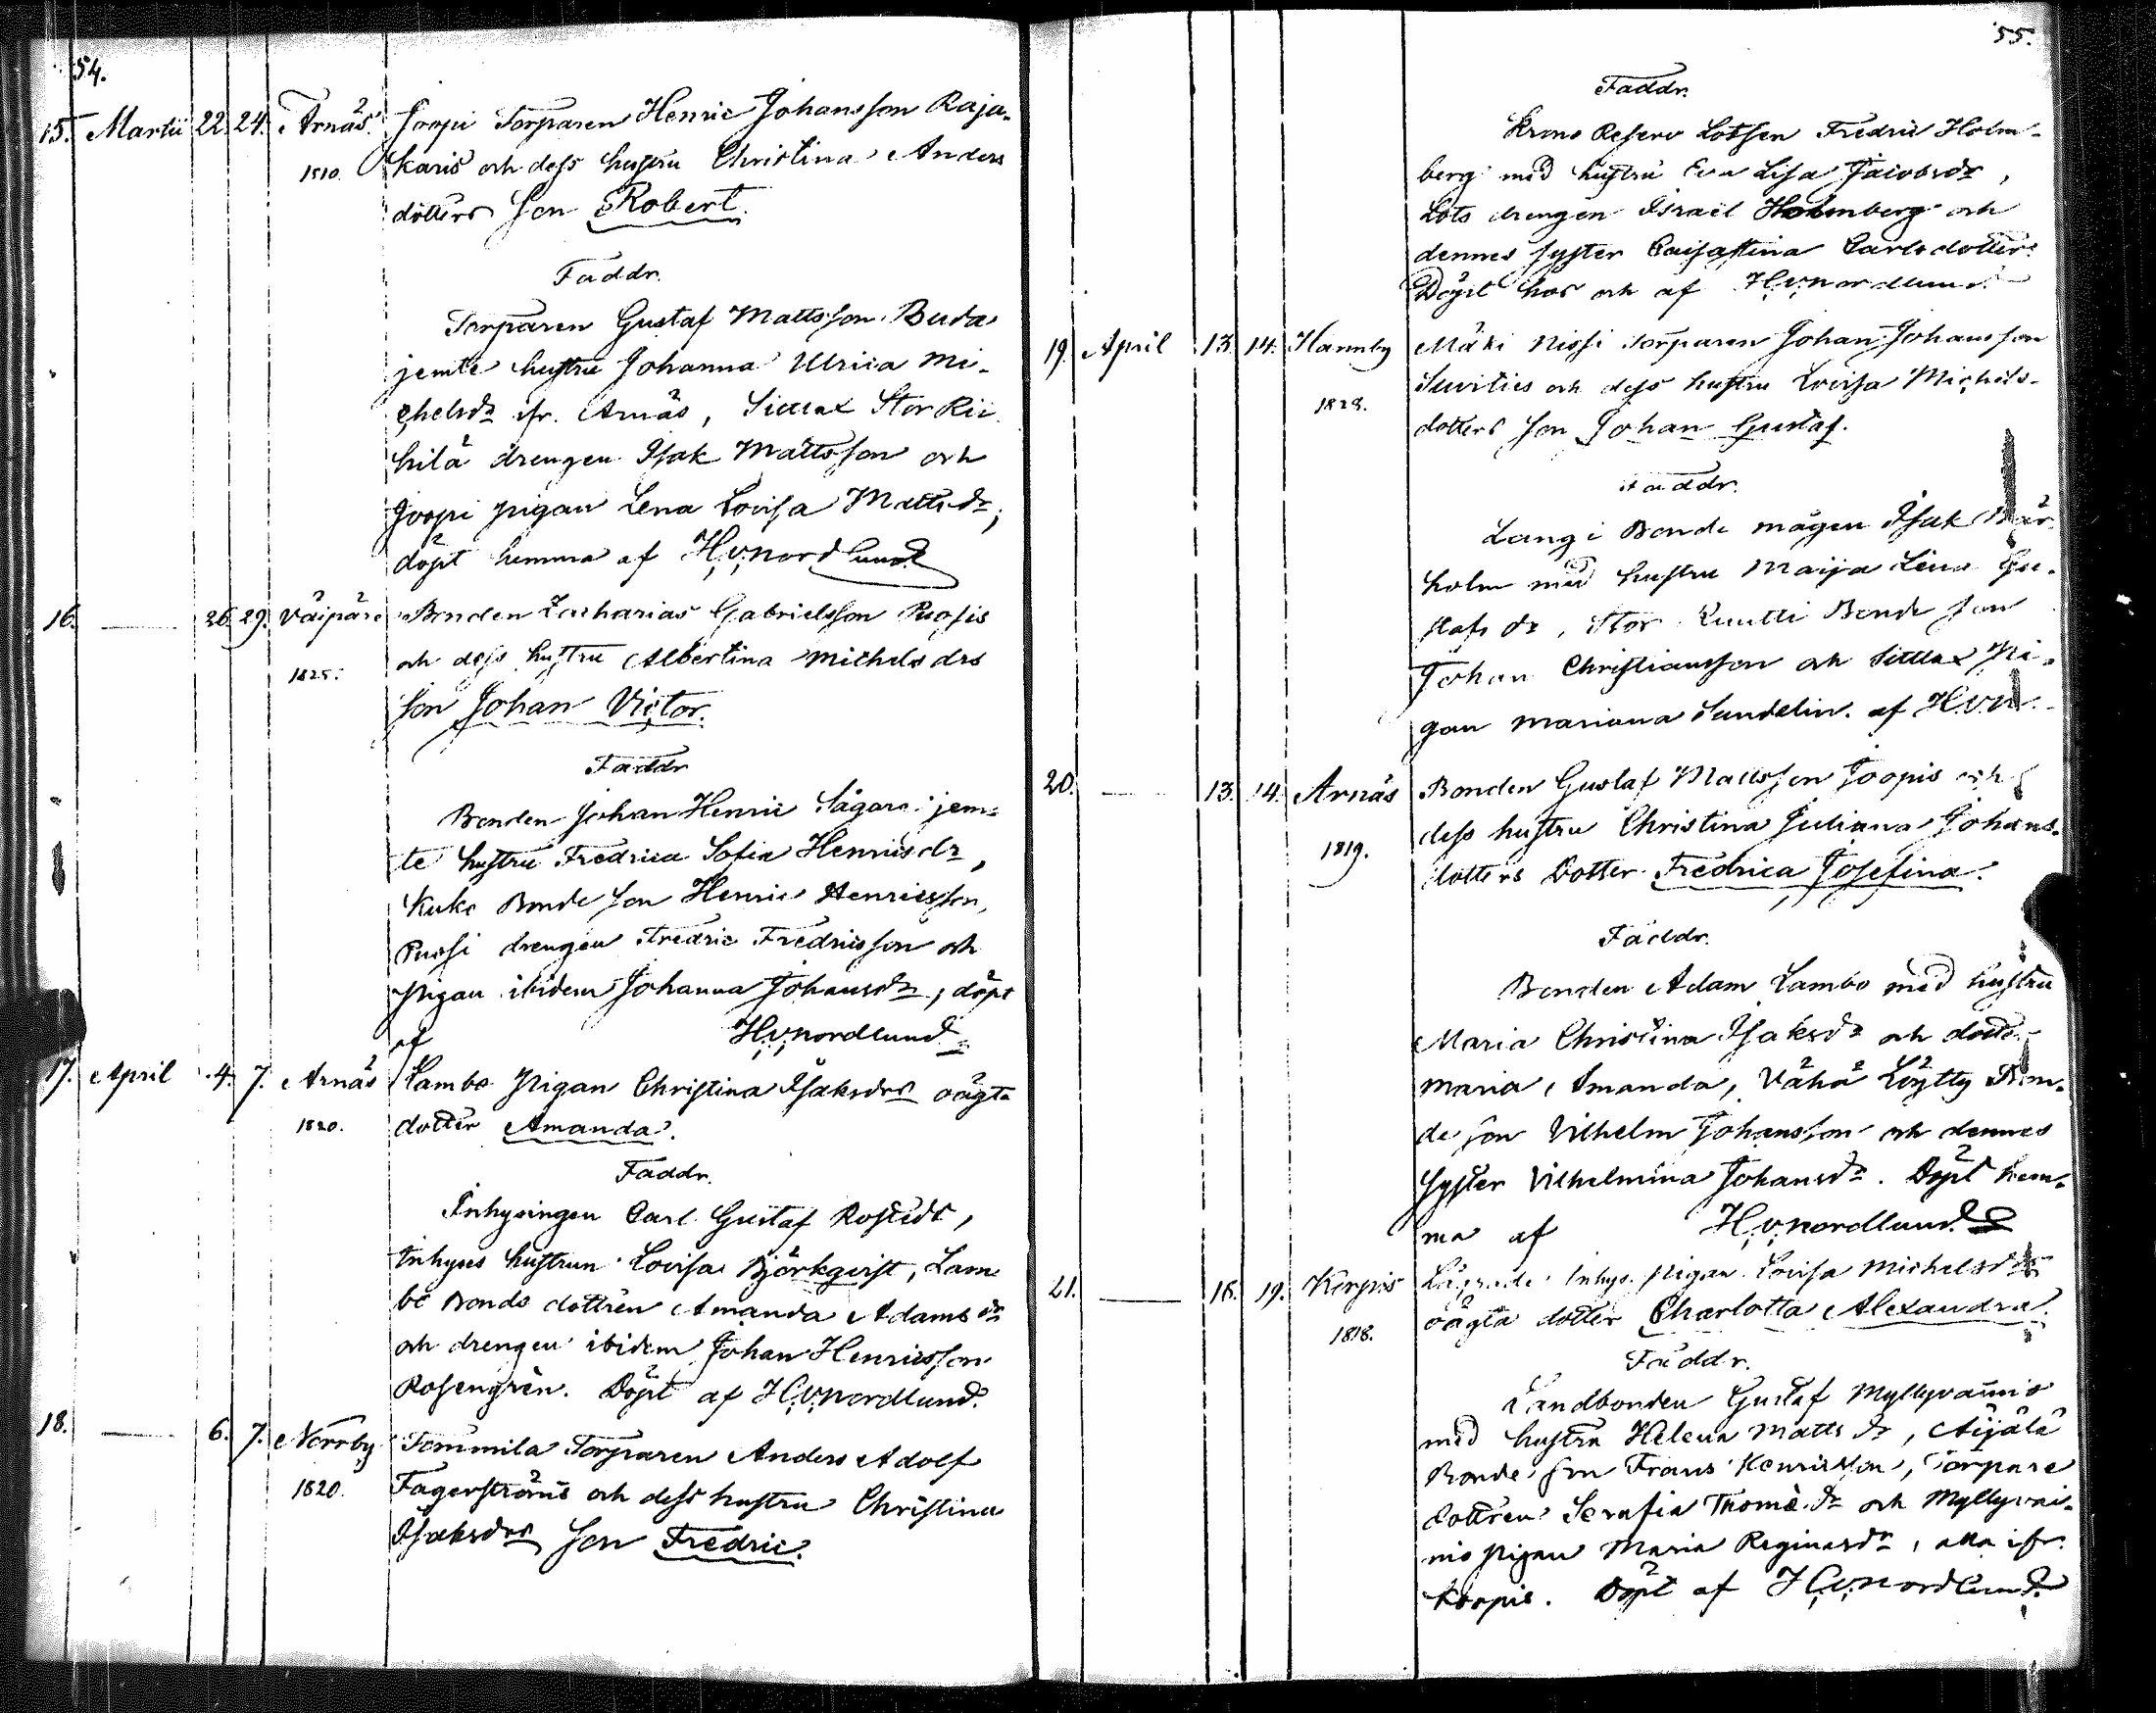 54.
15. Martii 22. 24. Arnäs. Joopi Torparen Henric Johansson Raja-
1810. karis och dess hustru Christina Anders
dotters Son Robert.
Faddr.
Torparen Gustaf Mattsson Buda
jemte hustru Johanna Ulrica Mi-
chelsdr fr. Arnäs, Sittlax Stor Rii
hilä drengen Isak Mattsson och
Joopi pigan Lena Lovisa Mattsdr;
döpt hemma af H.v.Nordlund
16. — 26. 29. Väipäre Bonden Zacharias Gabrielsson Puosis
1825. och dess hustru Albertina Michels drs
Son Johan Victor.
Faddr
Bonden Johan Henric Sägars jem-
te hustru Fredrica Sofia Henricsdr,
Kuko Bonde Son Henric Henricsson,
Puosi drengen Fredric Fredricsson och
Pigan ibidem Johanna Johansdr, döpt
af H.v.Nordlund
17. April 4. 7. Arnäs Lambo Pigan Christina Isaksdrs oägta
1820. dotter Amanda.
Faddr.
Inhysingen Carl Gustaf Rostedt,
Inhyses hustrun Lovisa Björkqvist, Lam
bo Bonds dottren Amanda Adamsdr
och drengen ibidem Johan Henricsson
Rosengrén. Döpt af H.v.Nordlund.
18. — 6. 7. Norrby Tommila Torparen Anders Adolf
1820. Fagerströms och dess hustru Christina
Isaksdrs Son Fredric.
55.
Faddr.
Krono Reserv Lotsen Fredric Holm-
berg med hustru Eva Lisa Jacobsdr,
Lots drengen Israel Holmberg och
dennes syster Caisastina Carlsdotter.
Döpt hos och af H.v.Nordlund
19. April 13. 14. Hannby Mäki Nissi Torparen Johan Johansson
1828. och dess hustru Lovisa Michels-
dotters Son Johan Gustaf.
Faddr.
Langi Bonde mågen Isak
holm med hustru Maija Lena Gu-
stafs dr, Stor Kuutti Bonde Son
Johan Christiansson och Sittlax Pi-
gan Mariana Sundelin. af H.v.N.
20. — 13. 14. Arnäs Bonden Gustaf Mattsson Joopis och
1819. dess hustru Christina Juliana Johans-
dotters Dotter Fredrica Josefina.
Faddr.
Bonden Adam Lambo med hustru
Maria Christina Isaksdr och
Maria Amanda, Vähä Löytty Bon-
de son Vilhelm Johansson och dennes
syster Vilhelmina Johansdr. Döpt hem-
ma af H.v.Nordlund.
21. — 16. 19. Korpis Inhys. pigan Lovisa Michelsdrs
1818. oägta dotter Charlotta Alexandra.
Faddr.
Landbonden Gustaf Myllyvainio
med hustru Helena Matts dr, Äijälä
Bonde son Frans Henricsson, Torpare
dottren Serafia Thomæ dr och Myllyvai-
nio pigan Maria Reginasdr, alla ifr.
Korpis. Döpt af H.v.Nordlund.